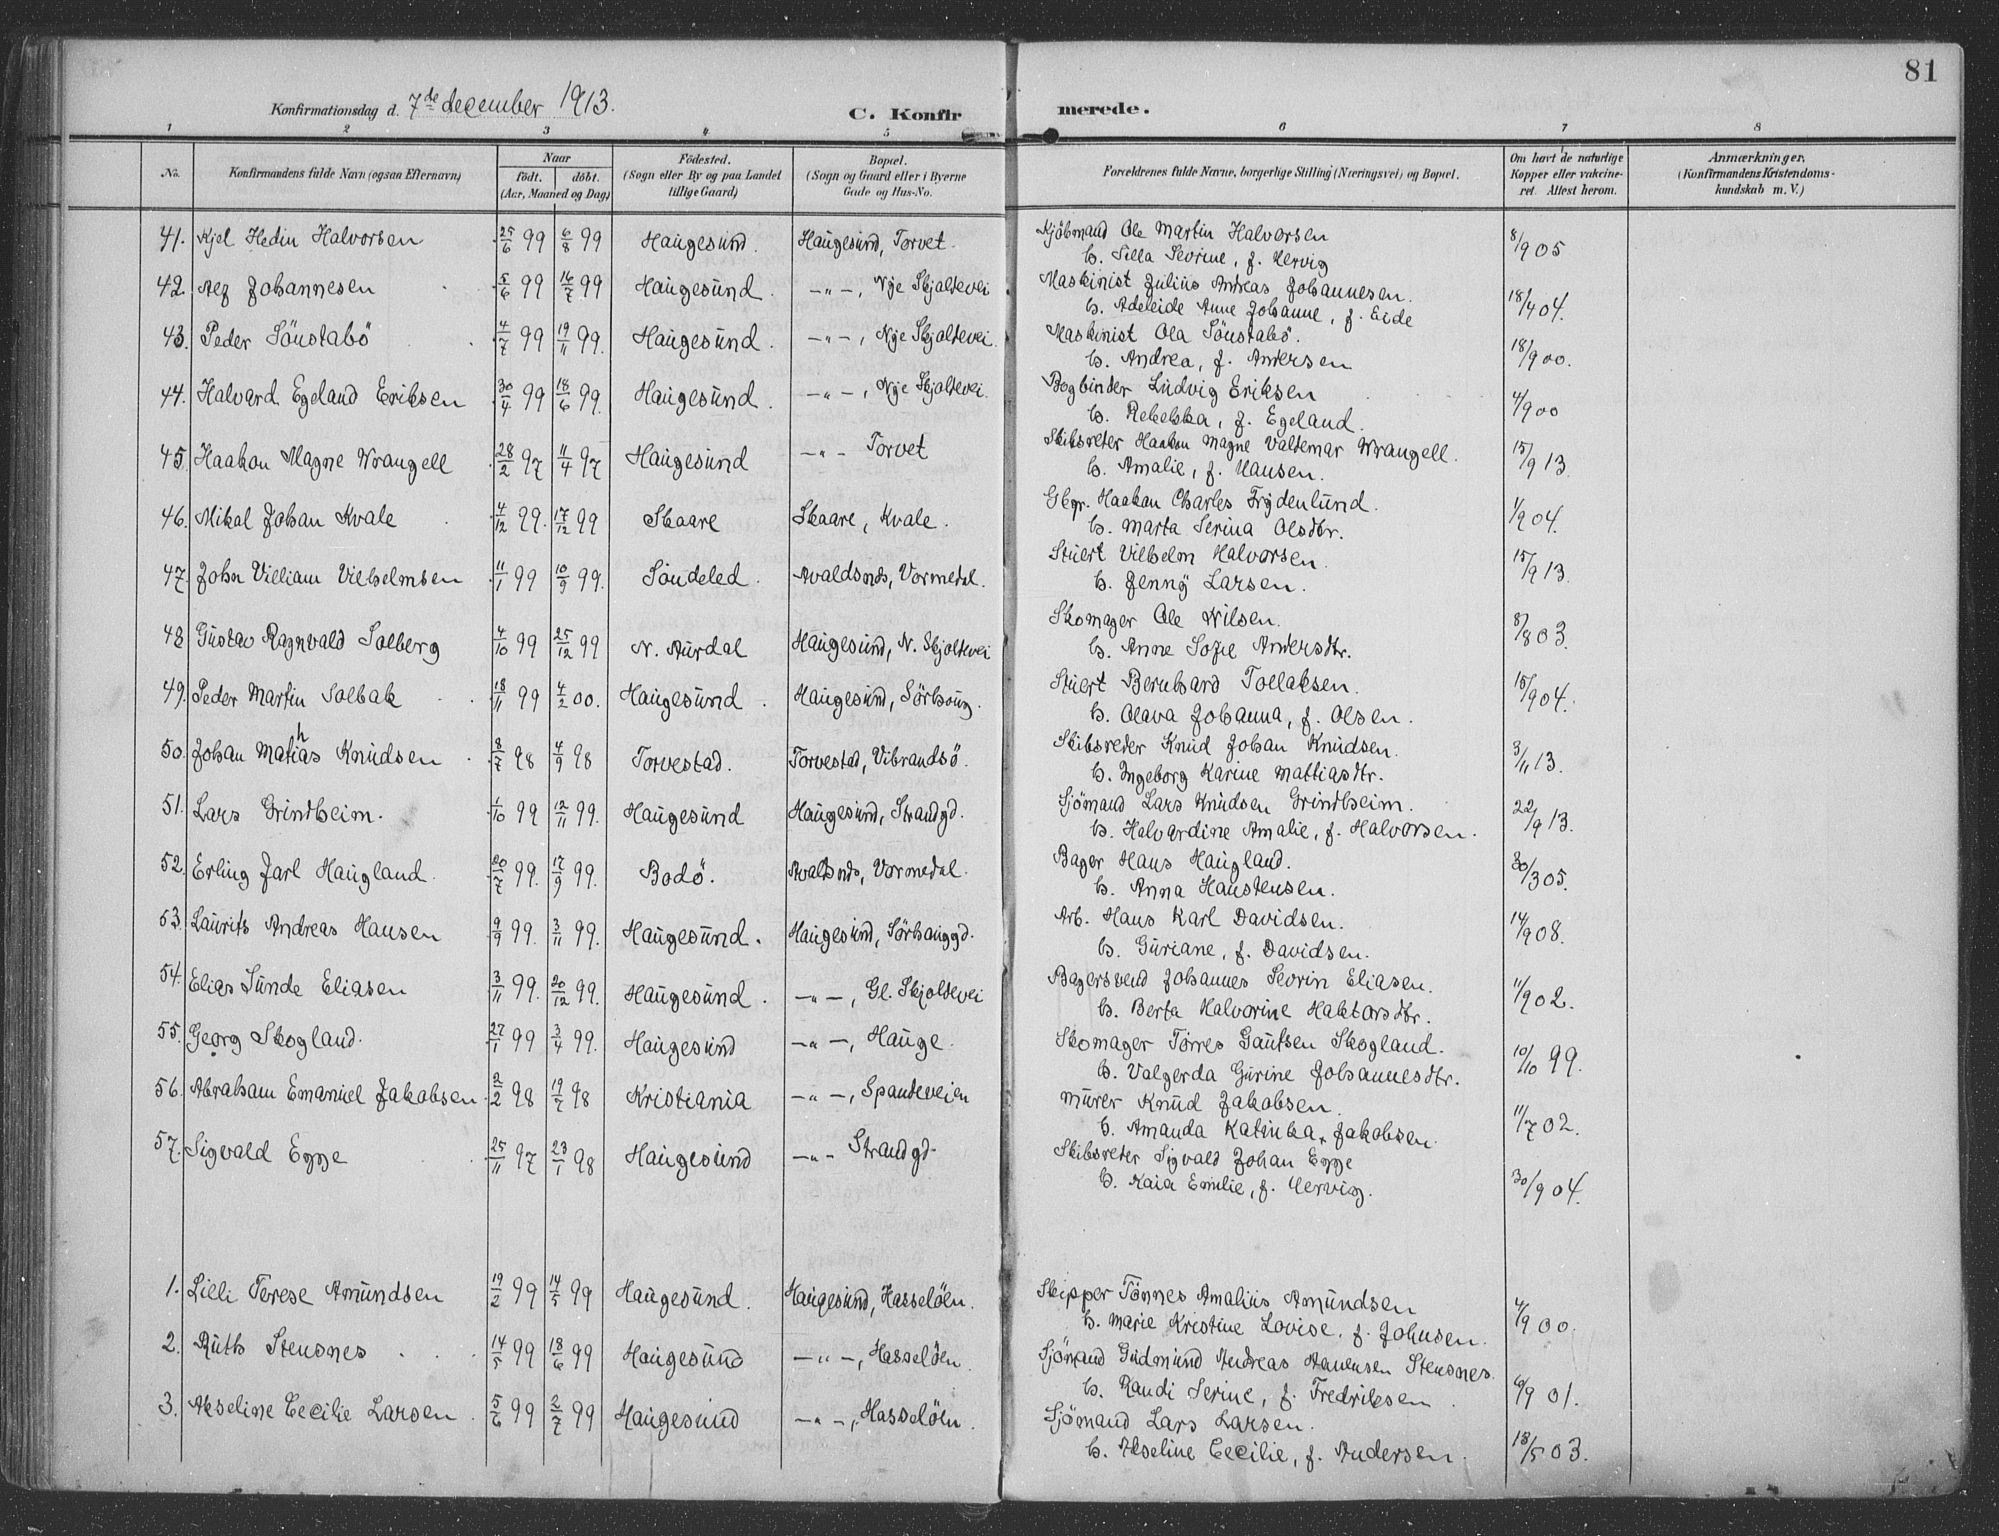 81
Konfirmationsdag d. 7de december 1913.
C. Konfirmerede.
1 2 3 4 5 6 7 8
No. Konfirmandens fulde Navn (ogsaa Efternavn) Naar födt. döbt. (Aar, Maaned og Dag) Födested. (Sogn eller By og paa Landet tillige Gaard) Bopæl. (Sogn og Gaard eller i Byerne Gade og Hus-No. Forældrenes fulde Navne, borgerlige Stilling (Næringsvei) og Bopæl. Om havt de naturlige Kopper eller vaccineret. Attest herom. Anmærkninger. (Konfirmandens Kristendomskundskab m. V.)
41. Kjel Hedin Halvorsen 25/6 99 6/8 99 Haugesund. Haugesund, Torvet. Kjöbmand Ole Martin Halvorsen 8/9 05
h. Silla Sevrine, f. Hervig
42. Alf Johannesen 5/6 99 16/7 99 Haugesund. —„—, Nye Skjoldevei Maskinist Julius Andreas Johannesen. 18/4 04.
h. Adeleide Anne Johanne, f. Eide
43. Peder Sönstabö 4/7 99 19/11 99. Haugesund. —„—, Nye Skjoldevei. Maskinist Ola Sönstabö. 18/9 00.
h. Andrea, f. Andersen
44. Halvard Egeland Eriksen 30/4 99 18/6 99. Haugesund. —„—, Nye Skjoldevei. Bogbinder Ludvig Eriksen 4/9 00
h. Rebekka, f. Egeland.
45. Haakon Magne Wrangell 28/2 97 11/4 97 Haugesund —„— Torvet Skibsreder Haakon Magne Valdemar Wrangell. 15/9 13.
h. Amalie, f. Hansen.
46. Mikal Johan Kvale 4/12 99. 17/12 99 Skaare Skaare, Kvale. Gbgr. Haakon Charles Frydenlund. 1/9 04.
h. Marta Serina Olsdtr.
47. John Villiam Vilhelmsen 11/1 99 10/9 99. Söndeled. Avaldsnds, Vormedal. Stuert Vilhelm Halvorsen. 15/9 13.
h. Jenny Larsen.
48. Gustav Ragnvald Solberg 4/10 99 25/12 99 N. Aurdal Haugesund, N. Skjoldevei Skomager Ole Nilsen. 8/8 03.
h. Anne Sofie Andersdtr.
49. Peder Martin Solbak 18/11 99 4/2 00. Haugesund. Haugesund, Sörhaug. Stuert Bernhard Tollaksen. 15/9 04.
h. Olava Johanna, f. Olsen.
50. Johan Mathias Knudsen 8/7 98 4/9 98 Torvestad. Torvestad, Vibrandsö. Skibsreder Knud Johan Knudsen. 3/11 13.
h. Ingeborg Karine Mattiasdtr.
51. Lars Grindheim. 1/10 99 12/11 99. Haugesund Haugesund, Strandgd. Sjömand Lars Knudsen Grindheim. 22/9 13.
h. Halvardine Amalie, f. Halvorsen.
52. Erling Jarl Haugland. 20/7 99. 17/9 99. Bodö. Avaldsnds, Vormedal. Bager Hans Haugland. 30/3 05.
h. Anna Hanstensen.
53. Laurits Andreas Hansen 9/9 99. 3/11 99. Haugesund. Haugesund, Sörhauggd. Arb. Hans Karl Davidsen. 14/9 08.
h. Guriane, f. Davidsen.
54. Elias Sunde Eliasen 3/11 99. 20/12 99. Haugesund. —„—, Gl. Skjoldevei Bagersvend Johannes Sevrin Eliasen. 11/9 02.
h. Berta Halvorine Haktorsdtr.
55. Georg Skogland. 27/1 99 3/4 99. Haugesund —„—, Hauge. Skomager Törres Gautsen Skogland. 10/10 99.
h. Valgerda Gurine Johannesdtr.
56. Abraham Emanuel Jakobsen. 2/2 98 19/7 98 Kristiania —„—, Spandeveien Murer Knud Jakobsen. 11/7 02.
h. Amanda Katinka, Jakobsen.
57. Sigvald Egge 25/11 97 23/1 98 Haugesund —„— Strandgd. Skibsreder Sigvald Johan Egge 30/9 04.
h. Kaia Emilie, f. Hervig.
1. Lilli Terese Amundsen 19/2 99 14/5 99 Haugesund. Haugesund, Hasselöen. Skipper Tönnes Amalius Amundsen 4/9 00.
h. Marie Kristine Lovise, f. Johnsen.
2. Ruth Stensnes 14/5 99 18/6 99 Haugesund —„—, Hasselöen. Sjömand Gudmund Andreas Stensnes. 6/9 01.
h. Randi Serine, f. Fredriksen
3. Akseline Cecilie Larsen. 5/6 99 2/7 99 Haugesund —„—, Hasselöen. Sjömand Lars Larsen. 18/5 03.
h. Akseline Cecilie, f. Andersen.